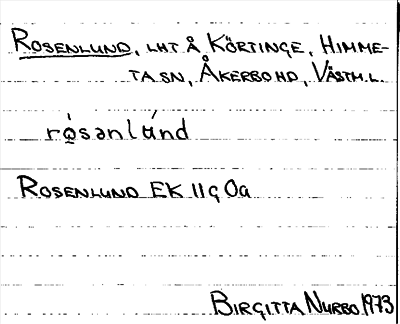 ROSENLUND, LHT Å KÖRTINGE, HIMME-
TA SN, ÅKERBO HD, VÄSTM.L.
rò̱sənlánd
ROSENLUND EK 11g 0a
BIRGITTA NURBO 1973